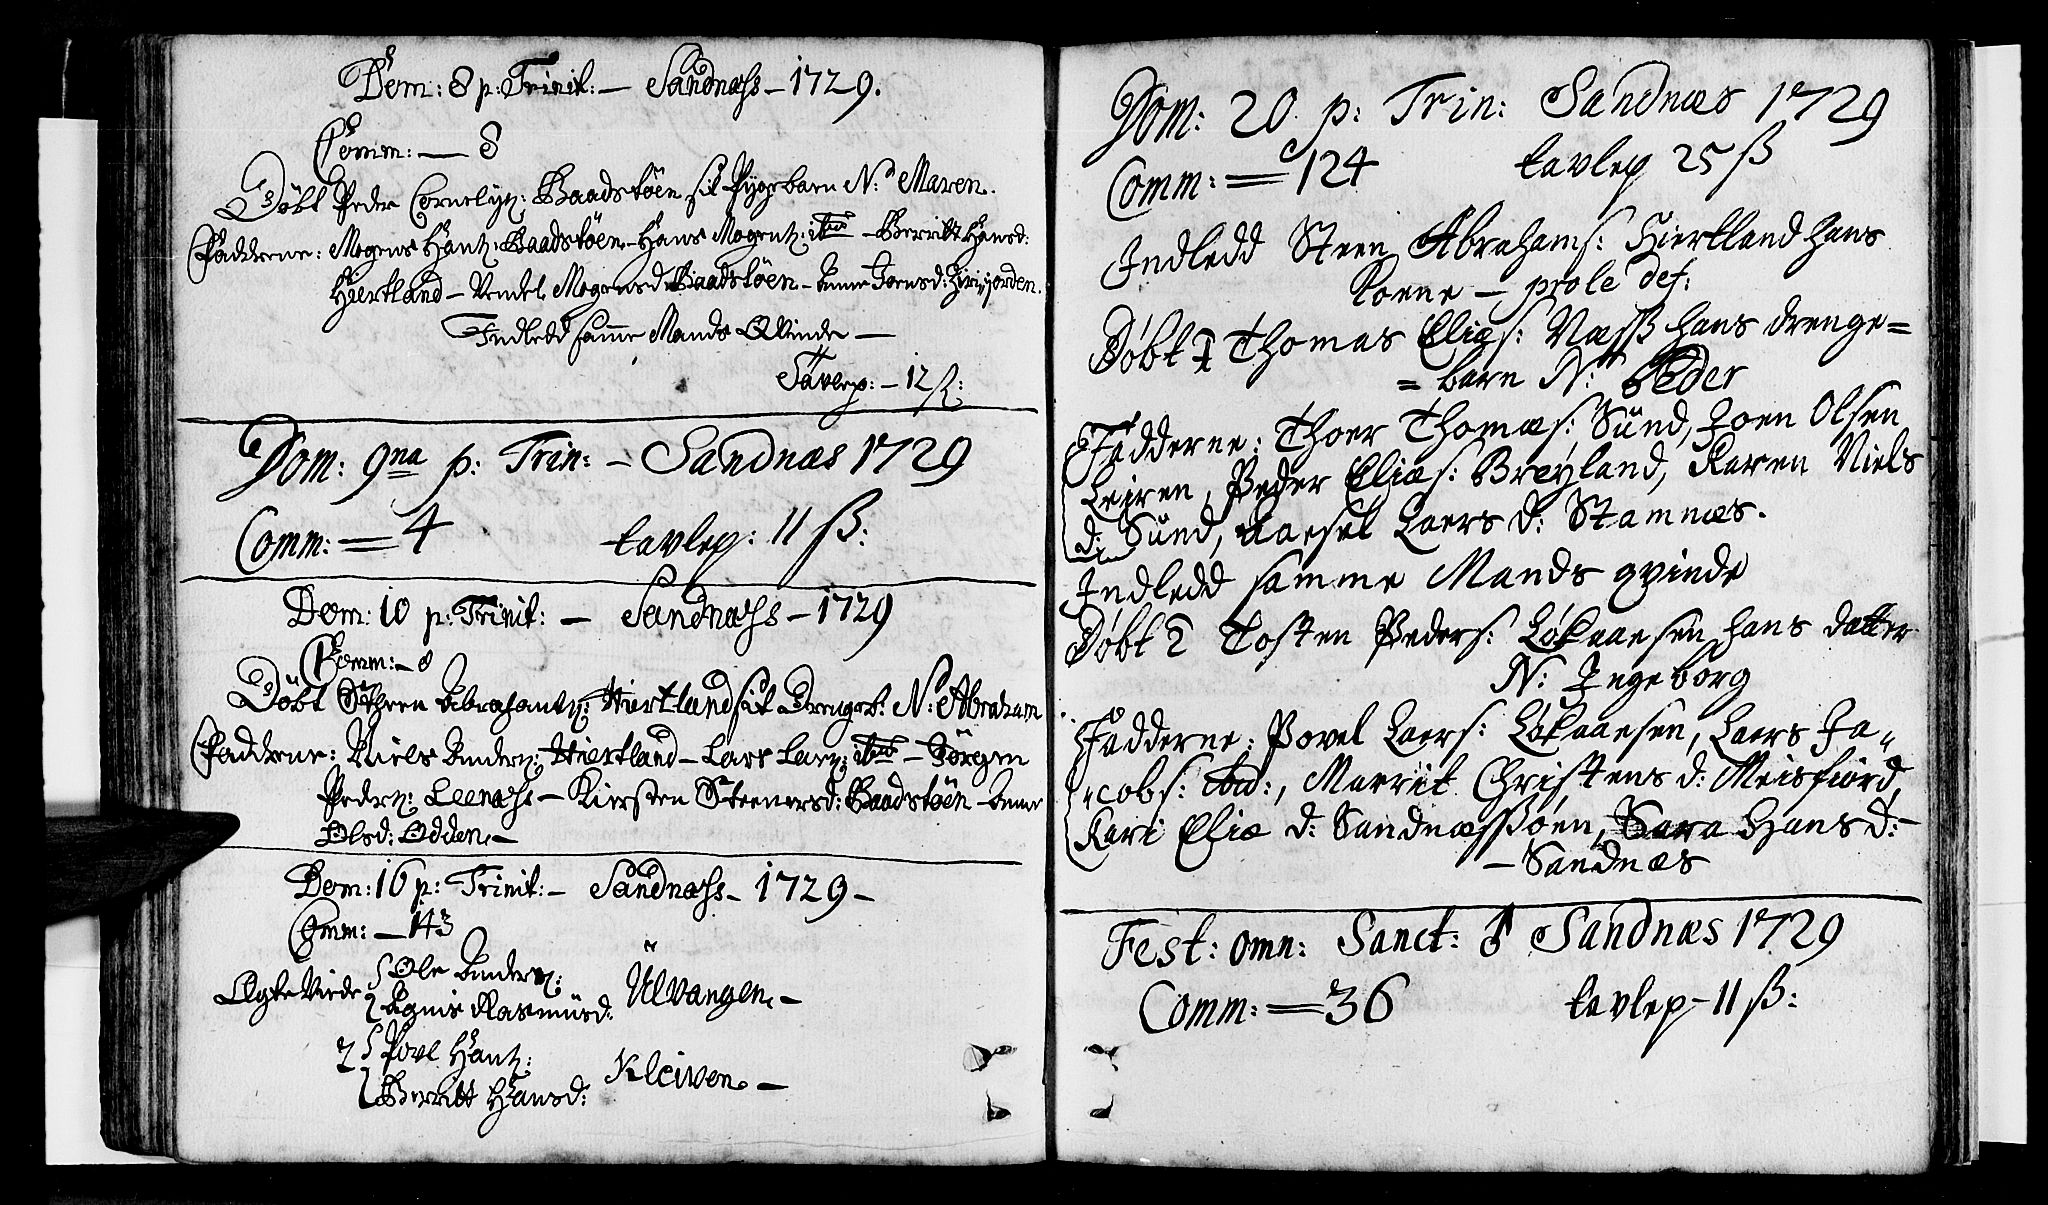 Dom: 8 p: Trinit: – Sandnæss – 1729.
Comm: — 8
Døbt Peder Cornelii: Baadstöen sit Pygebarn N: Maren.
Faddrene: Mogens Hantz: Baadstöen – Hans Mogentz: ibid – Berritt Hansd:
Hiertland – Vendel Mogensd: Baadstöen – Anne Joensd:
Indledd samme Mands Qvinde —
Tavlep: – 12 ß:
Dom: 9na p: Trin: – Sandnæs 1729
Comm: = 4 tavlep: 11 ß:
Dom: 10 p: Trinit: – Sandnæss – 1729
Comm: – 8
Döbt Steen Abrahamtz: Hiertland sit Drengeb: N: Abraham
Faddrene: Niels Anders: Hiertland – Lars Lars: ibid – Jörgen
Peders: Leenæss – Kiersten Steenersd: Baadstöen – Anne
Olsd: Odden –
Dom: 16 p: Trinit: – Sandnæss – 1729 –
Comm: – 143
Ægte Viede Ole Anders:
Agnis Rasmusd: Ulvangen –
2 Povl Hantz:
Berritt Hansd: Kleiven –
Dom: 20 p: Trin: Sandnæs 1729
Comm: = 124 tavlep 25 ß
Indledd Steen Abrahams: Hiertland hans
Kone – prole def:
Døbt 1 Thomas Eliæs: Næss hans drenge=
= barn N: Peder
Fadderne: Thoer Thomæs: Sund, Joen Olsen
Leiren, Peder Eliæs: Breyland, Karen Niels
d: Sund, Aasel Laers d: Stamnæs.
Indledd samme Mands qvinde
Døbt 2 Tosten Peders: Løkaasen hans datter
N: Ingeborg
Fadderne: Povel Laers: Løkaasen, Laers Ja-
cobs: ibid:, Marrit Christens d: Meisfiord,
Kari Eliæ d: Sandnæssøen, Sara Hans d:
– Sandnæs
Fest: omn: Sanct: Sandnæs 1729
Comm: = 36 tavlep – 11 ß: